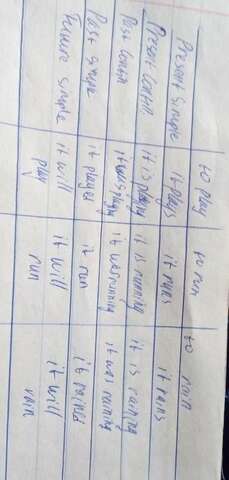 to play to run to rain
Present simple it plays it runs it rains
Present Contin it is playing it is running it is raining
Past Contin it was playing it was running it was raining
Past simple it played it run it rained
Future simple it will it will it will
play run rain